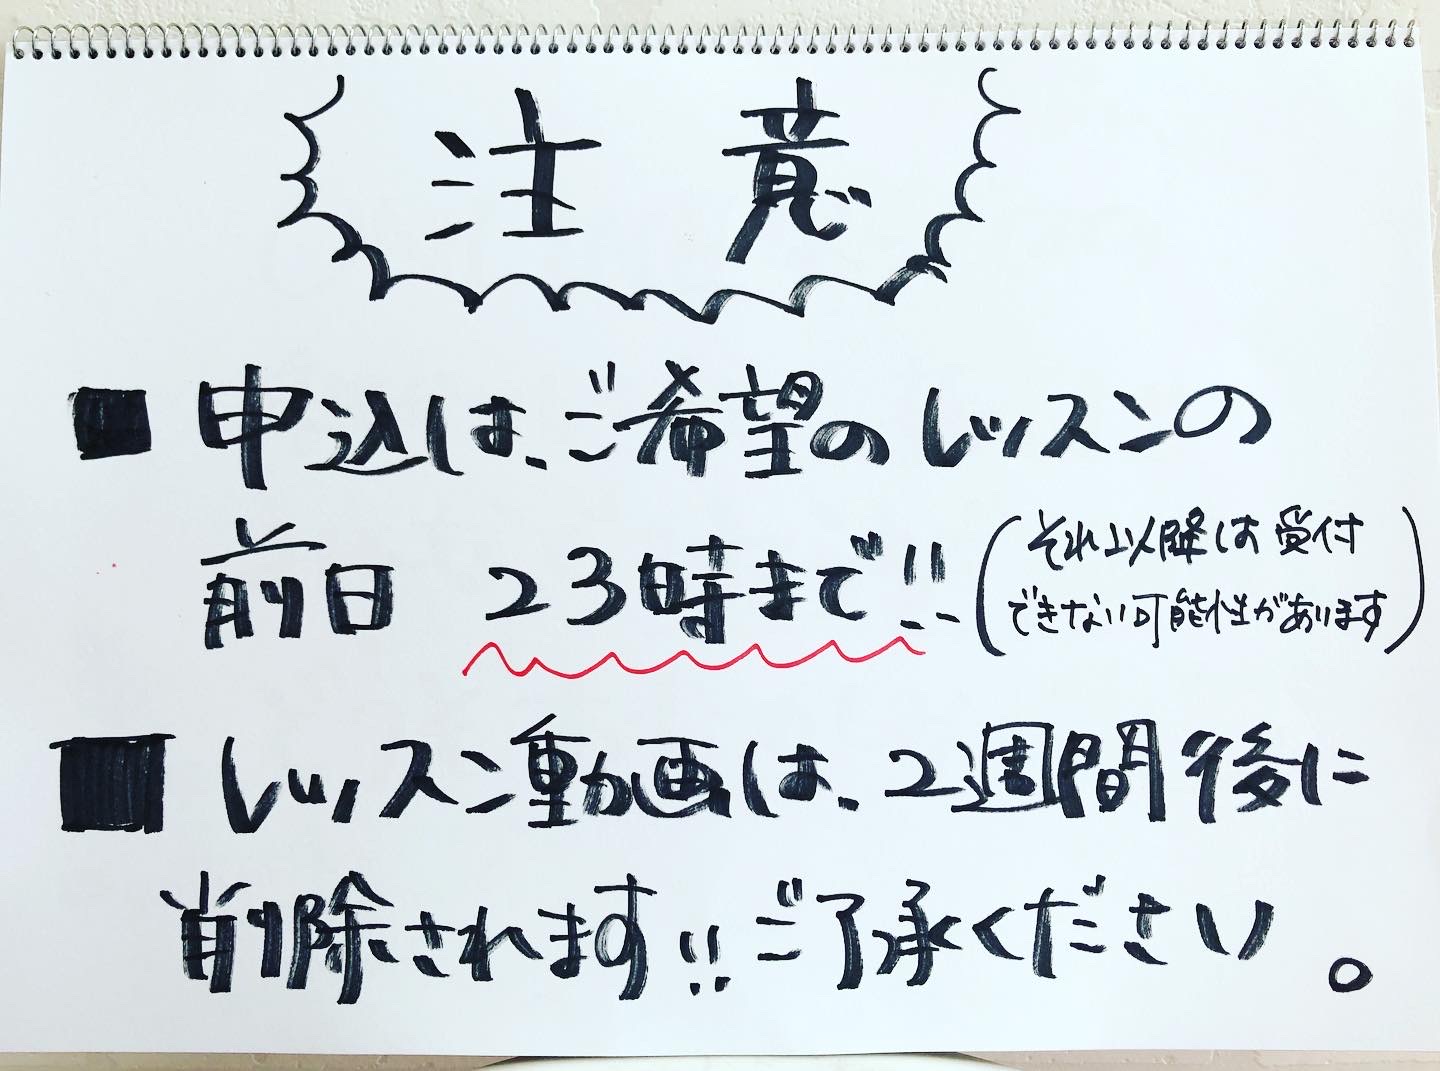 注意
■申込は、ご希望のレッスンの
前日 23時まで!!
(それ以降は受付
できない可能性があります)
■レッスン動画は、2週間後に
削除されます!!ご了承ください。